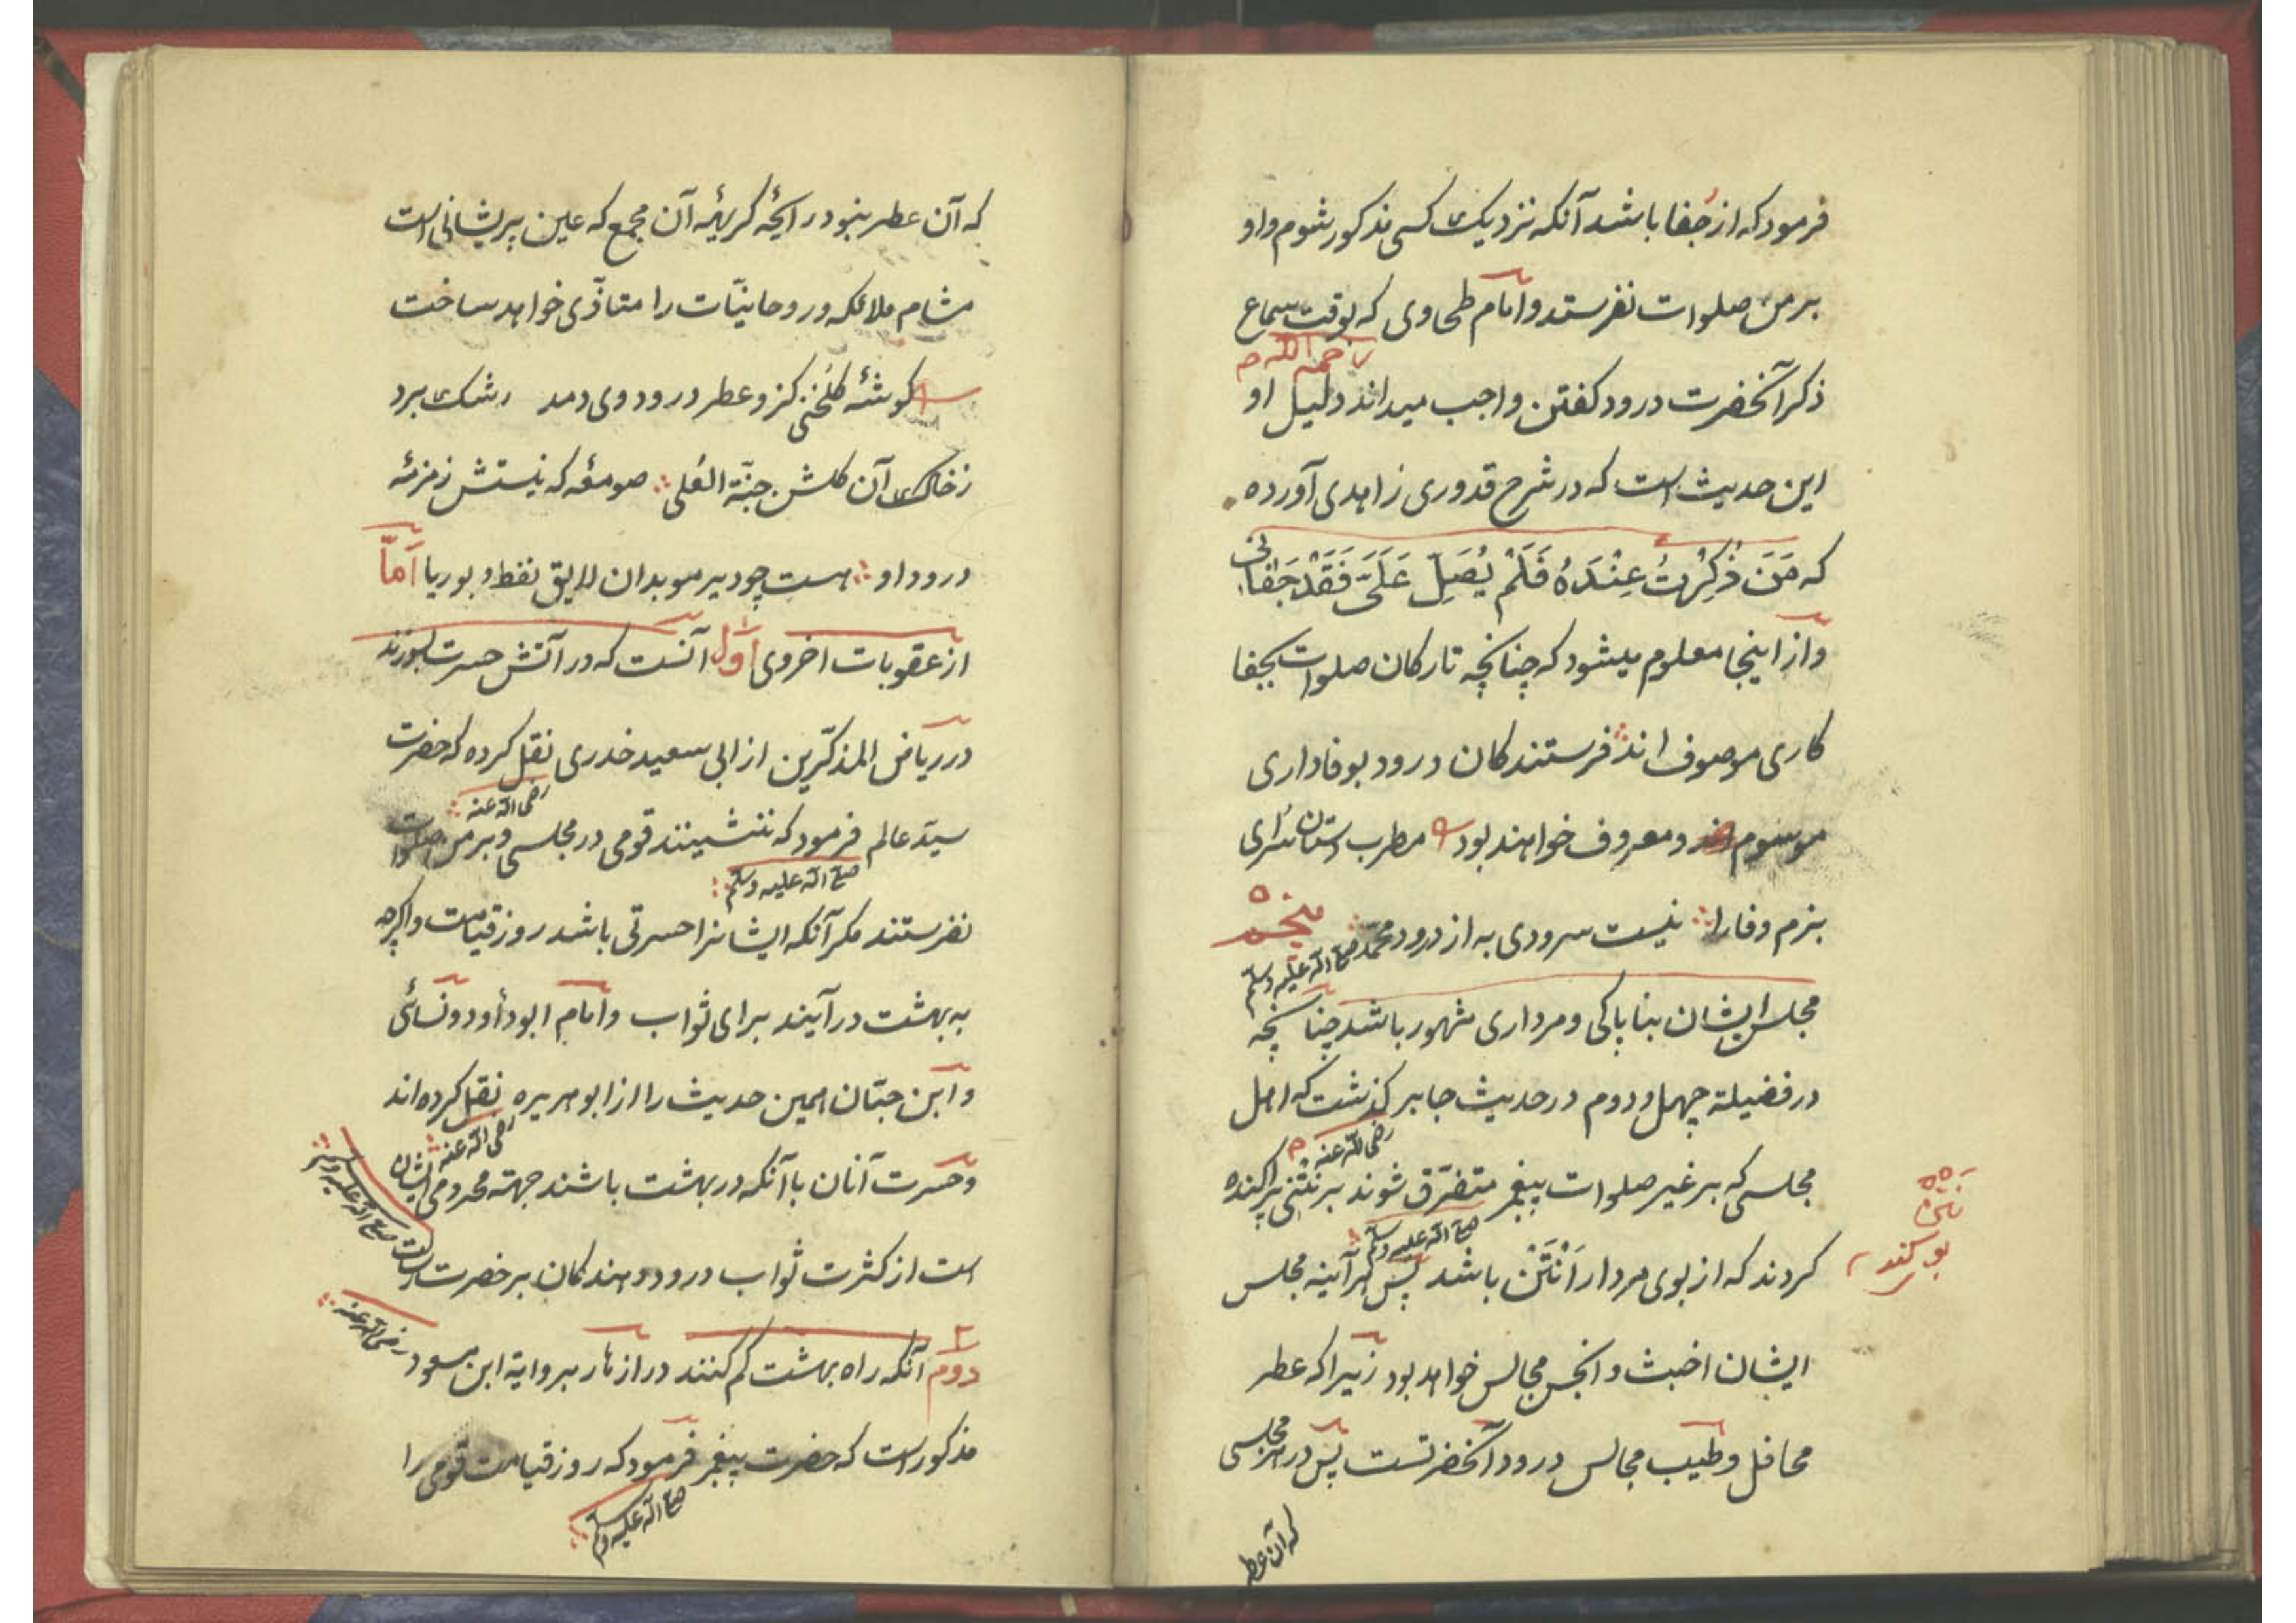 فرمود که از جفا باشد آنکه نزدیک کسی مذکور شوم و او
بر من صلوات نفرستد و امام طحاوی که بوقت سماع
رحمه الله
ذکر آنحضرت درود کفتن واجب میداند دلیل او
این حدیث است که در شرح قدوری زاهدی آورده
که مَنَ ذُکِرْتُ عِنْدَهُ فَلَمْ یُصَلِّ عَلَیَّ فَقَدْ جَفَانی
و از اینجا معلوم میشود که چنانچه تارکان صلوات بجفا
کاری موصوف اند فرستندکان درود بوفاداری
موسوم و معروف خواهند بود مطرب دستان سرای
بزم وفا را نیست سرودی به از درود محمد صلی الله علیه وسلم پنجم
مجلس ایشان بناپاکی و مرداری مشهور باشد چنانچه
در فضیلة چهل و دوم در حدیث جابر کذشت که اهل
رضی الله عنه
مجلسی که بر غیر صلوات پیغمبر متفرّق شوند بر نَتْنی پراکنده
صلی الله علیه وسلم
کردند که از بوی مردار اَنْتَنْ باشد پس هرآینه مجلس
نتن
بو کند
ایشان اخبث و انجس مجالس خواهد بود زیرا که عطر
محافل و طیب مجالس درود آنحضرتست پس در هر مجلسی
که آن عطر
که آن عطر نبود رایحهٔ کریههٔ آن مجمع که عین پریشانی است
مشام ملائکه و روحانیّات را متاذّی خواهد ساخت
کوشهٔ کلخنی کزو عطر درود وی دمد رشک برد
زخاک آن کلشن جنّة العُلی صومعه که نیستش زمزمهٔ
درود او هست چو دیر موبدان لایق نفط و بوریا اَمّا
از عقوبات اخروی اول آنست که در آتش حسرت بسوزند
در ریاض المذکّرین از ابی سعید خدری نقل کرده که حضرت
رضی الله عنه
سیّد عالم فرمود که ننشینند قومی در مجلسی و بر من صلوات
صلی الله علیه وسلم
نفرستند مکر آنکه ایشانرا حسرتی باشد روز قیامت و اکرچه
به بهشت درآیند برای ثواب و امام ابو دأود و نسائی
و ابن حبّان همین حدیث را از ابو هریره نقل کرده اند
رضی الله عنه
و حسرت آنان با آنکه در بهشت باشند جهتة محرومی ایشان
است از کثرت ثواب درود دهندکان بر حضرت رسالت صلی الله علیه وسلم
دوم آنکه راه بهشت کم کنند در ازهار بروایة ابن مسعود رضی الله عنه
مذکور است که حضرت پیغمبر فرمود که روز قیامت قومی را
صلی الله علیه وسلم